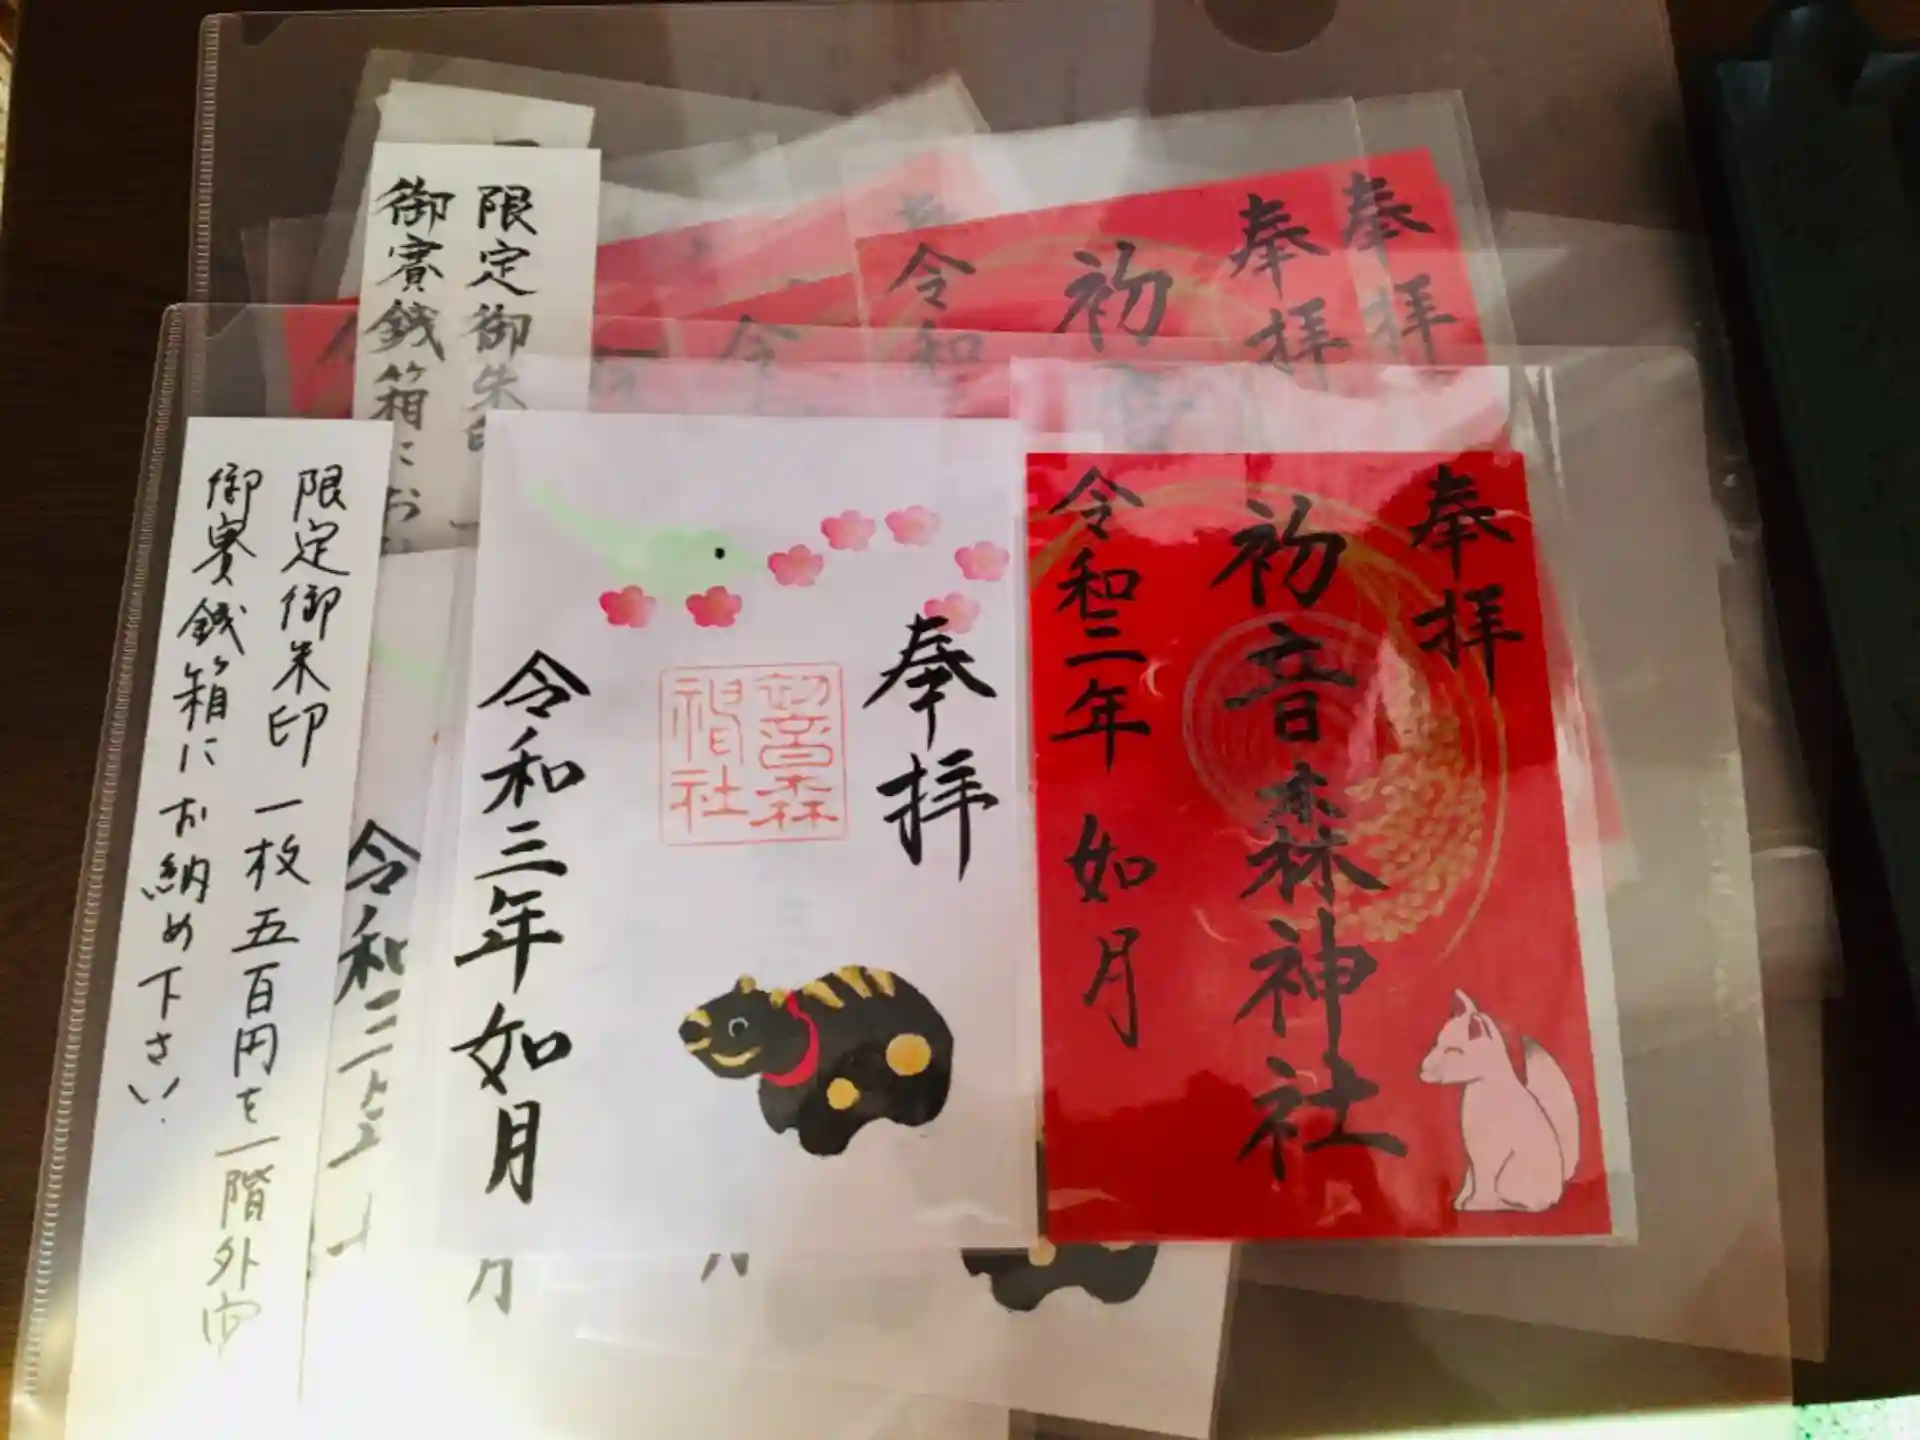 限定御朱
御賽銭箱にお
奉拝
奉拝
初
令和
令
限定御朱印 一枚五百円を一階外
御賽銭箱に お納め下さい
奉拝
初音森
神社
令和三年 如月
令和三
奉拝
初音森神社
令和二年 如月